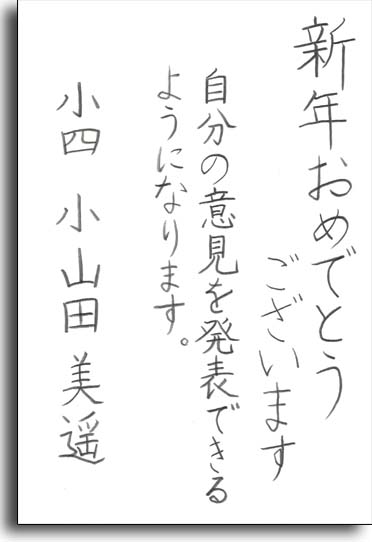 新年おめでとう
ございます
自分の意見を発表できる
ようになります。
小四 小山田 美遥